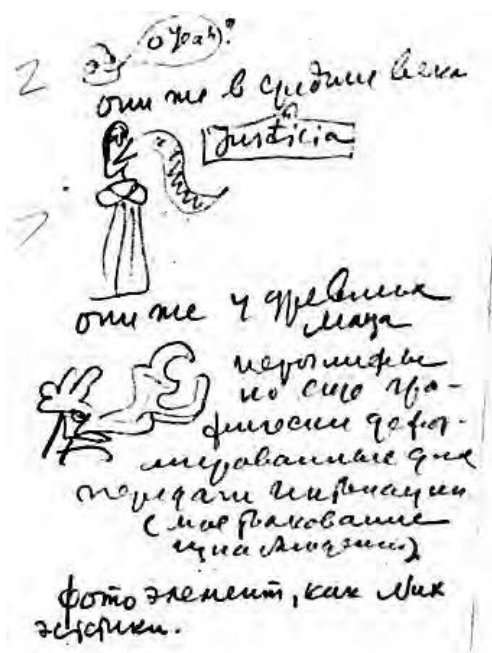 2
o Yeah)?
они же в средние века
Justicia
они же у древних
Маya
иероглифы
но еще гра-
фически дефор-
мированные для
передачи интонации
(мое толкование
фото элемент, как
эстетики.